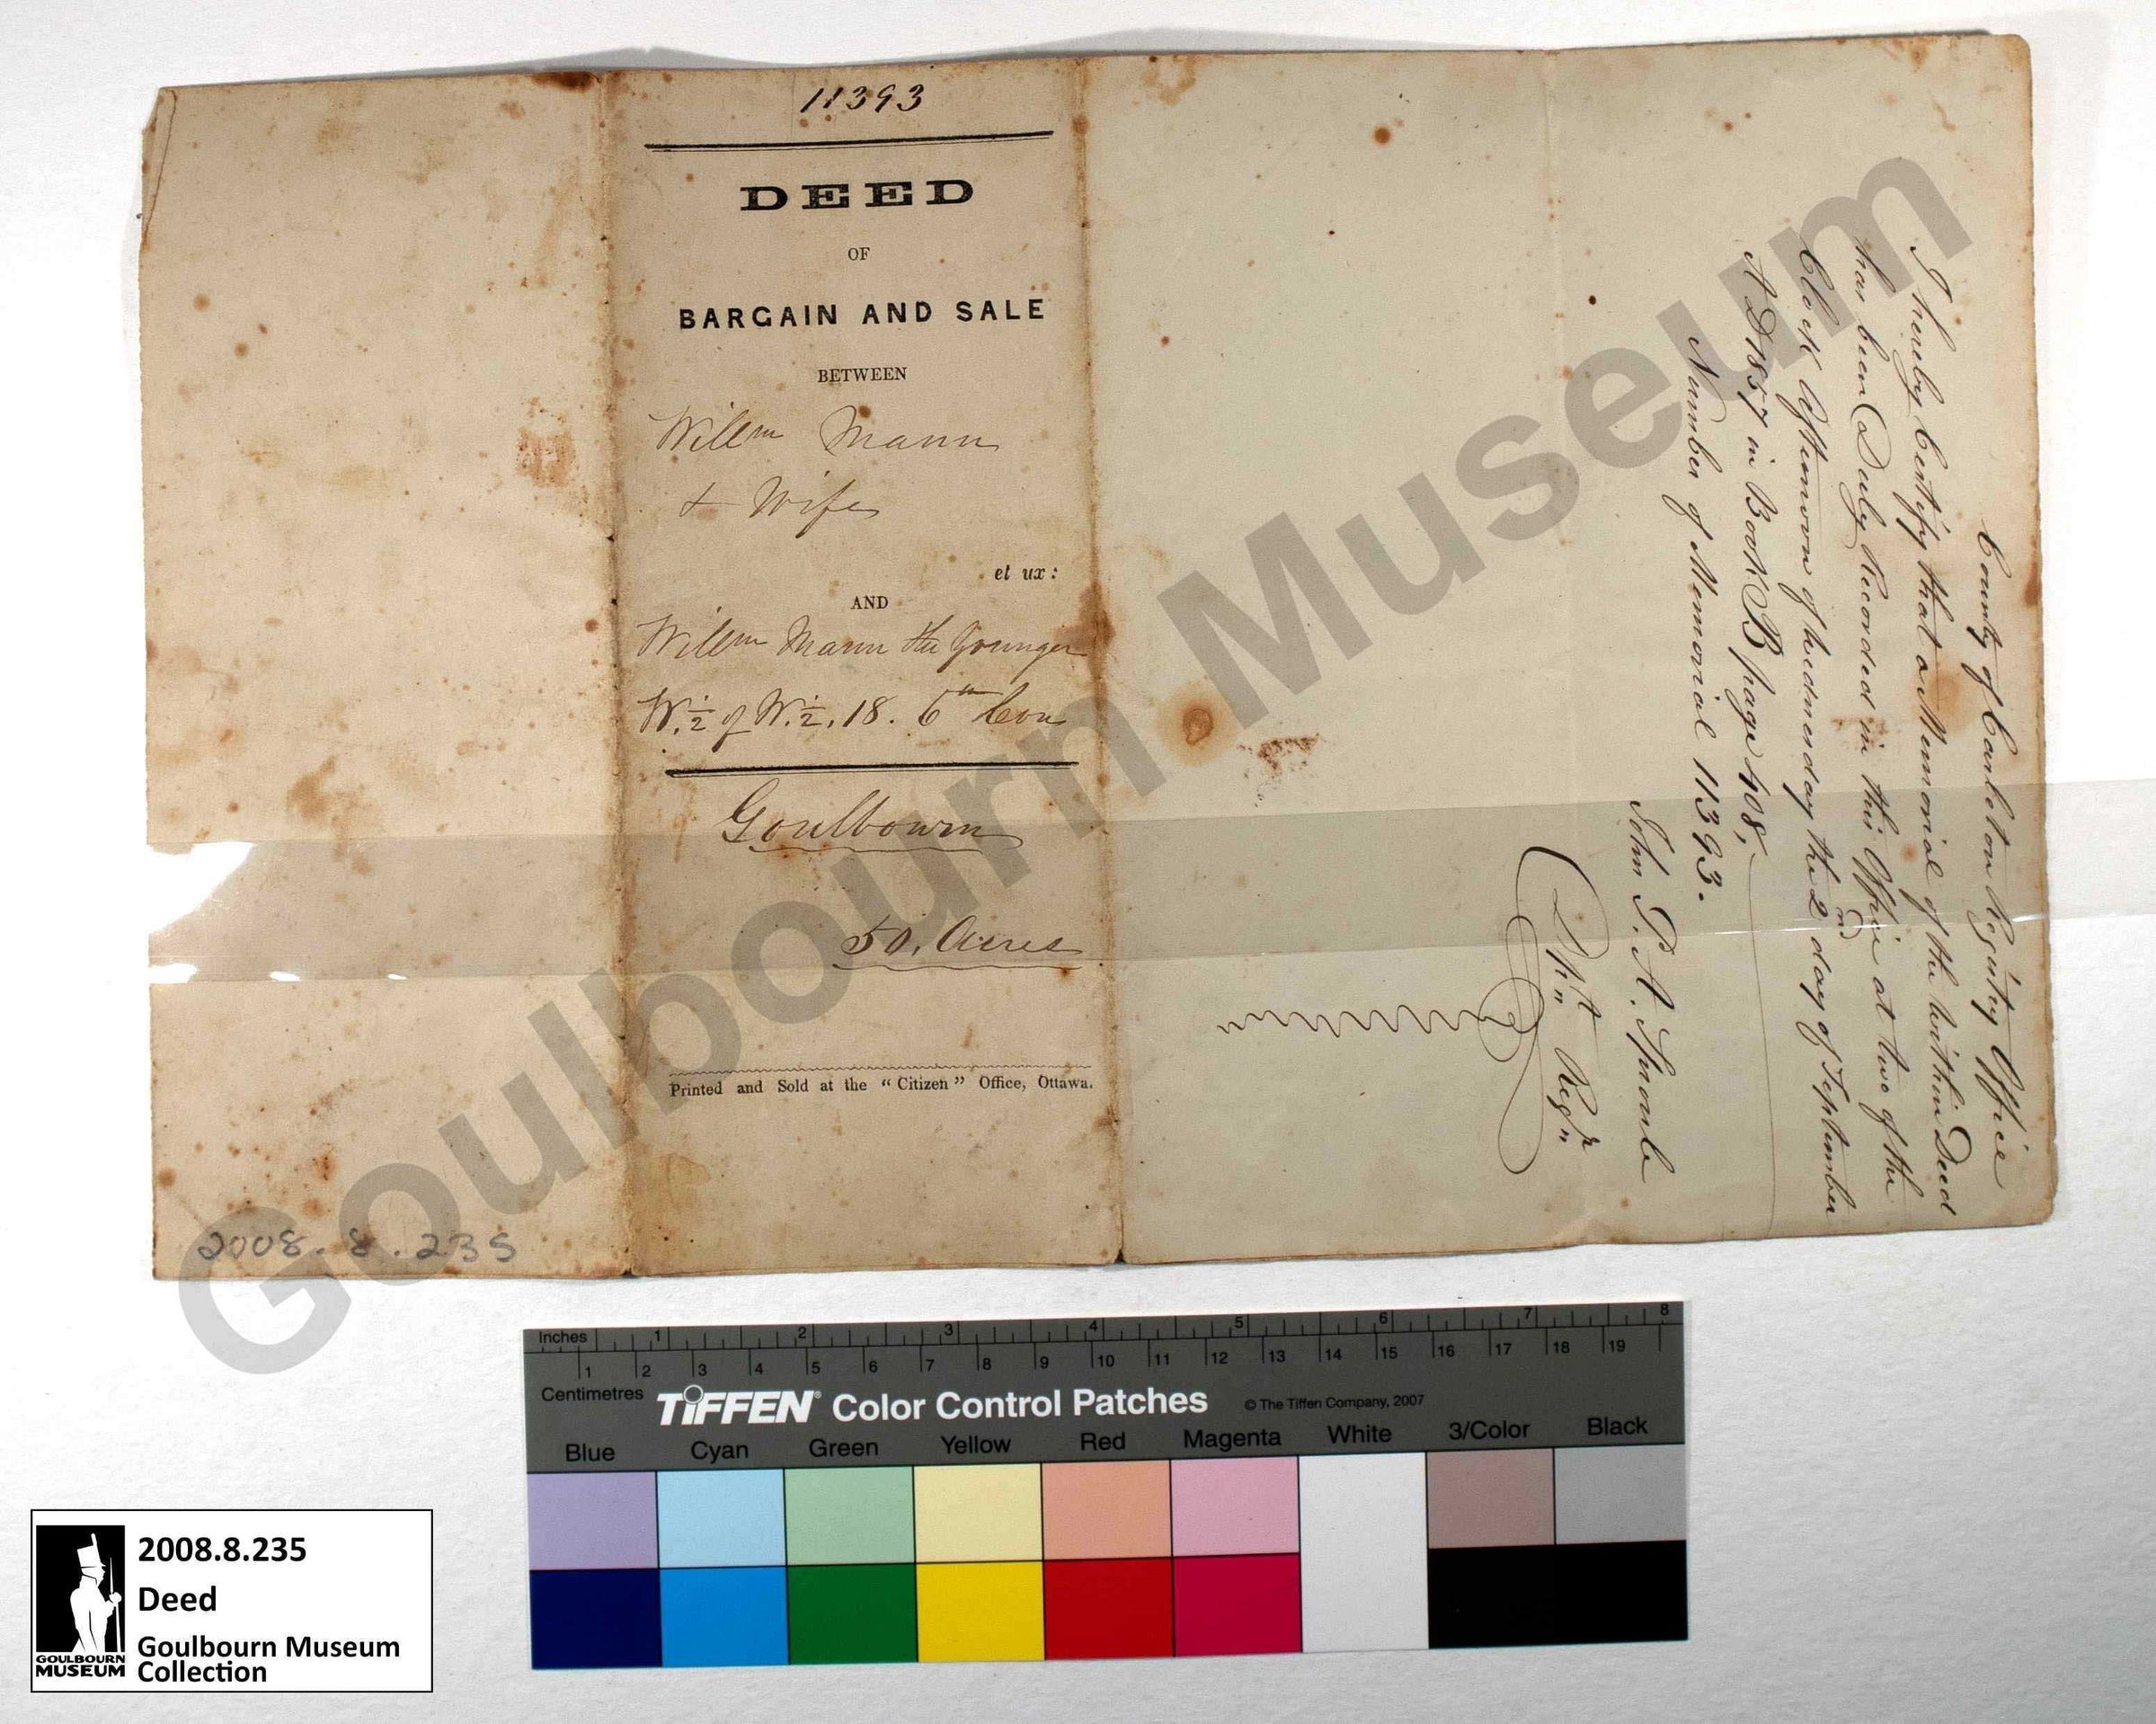 11393
DEED
OF
BARGAIN AND SALE
BETWEEN
Willm Mann
& Wife
et ux:
AND
Willm Mann the Younger
W. ½ of W. ½, 18. 6th Con
Goulbourn
50, Acres
Printed and Sold at the "Citizen" Office, Ottawa.
County of Carleton Registry Office
I hereby Certify that a Memorial of the within Deed
has been Duly Recorded in this Office at two of the
Clock Afternoon of Wednesday the 2nd day of September
A D 1857 in Book B page 408,
Number of Memorial 11393.
John P. A. Sproule
Dpt Regr
2008.8.235
Goulbourn Museum
Inches 1 2 3 4 5 6 7 8
1 2 3 4 5 6 7 8 9 10 11 12 13 14 15 16 17 18 19
Centimetres
TIFFEN® Color Control Patches © The Tiffen Company, 2007
Blue Cyan Green Yellow Red Magenta White 3/Color Black
2008.8.235
Deed
Goulbourn Museum
Collection
GOULBOURN
MUSEUM